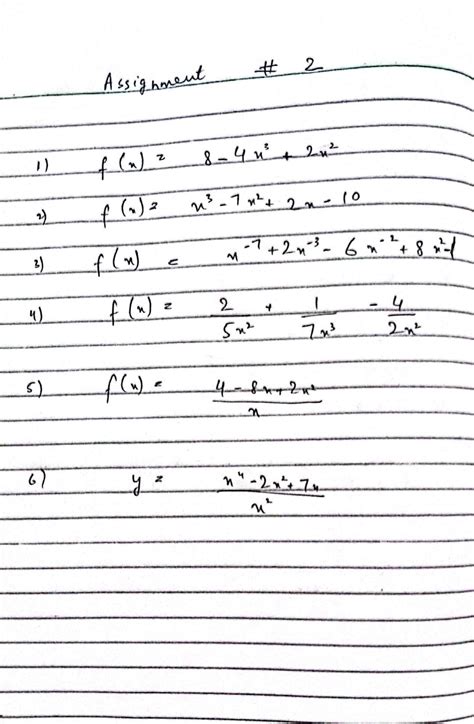 Assignment # 2
1) f(x) = 8 - 4x³ + 2x²
2) f(x) = x³ - 7x² + 2x - 10
3) f(x) = x⁻⁷ + 2x⁻³ - 6x⁻² + 8x² - 1
4) f(x) = 2/5x² + 1/7x³ - 4/2x²
5) f(x) = 4 - 8x + 2x²/x
6) y = x⁴ - 2x² + 7x/x²